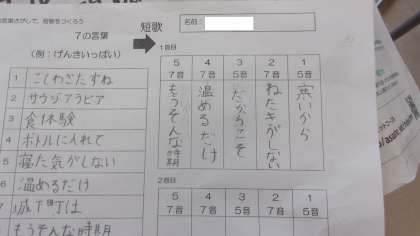 短歌
名前:
7の言葉
(例:げんきいっぱい)
1 こしわざたすね
2 サウジアラビア
3 食体験
4 ボトルに入れて
5 寝た気がしない
6 温めるだけ
7 城下町は
8 もうそんな時期
1首目
1
5音
寒いから
2
7音
ねたきがしない
3
5音
だからこそ
4
7音
温めるだけ
5
7音
もうそんな時期
2首目
5 4 3 2 1
7音 7音 5音 7音 5音